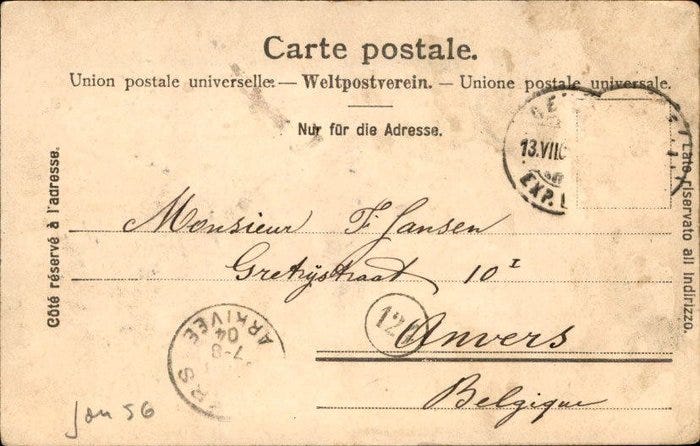 Carte postale.
Union postale universelle. — Weltpostverein. — Unione postale universale.
Nur für die Adresse.
Côté réservé à l'adresse.
Lato riservato all indirizzo.
13.VII
EXP.
Monsieur F. Jansen
Gretrystraat 10 I
Anvers
Belgique
ARRIVÉE
04
7-8
RS